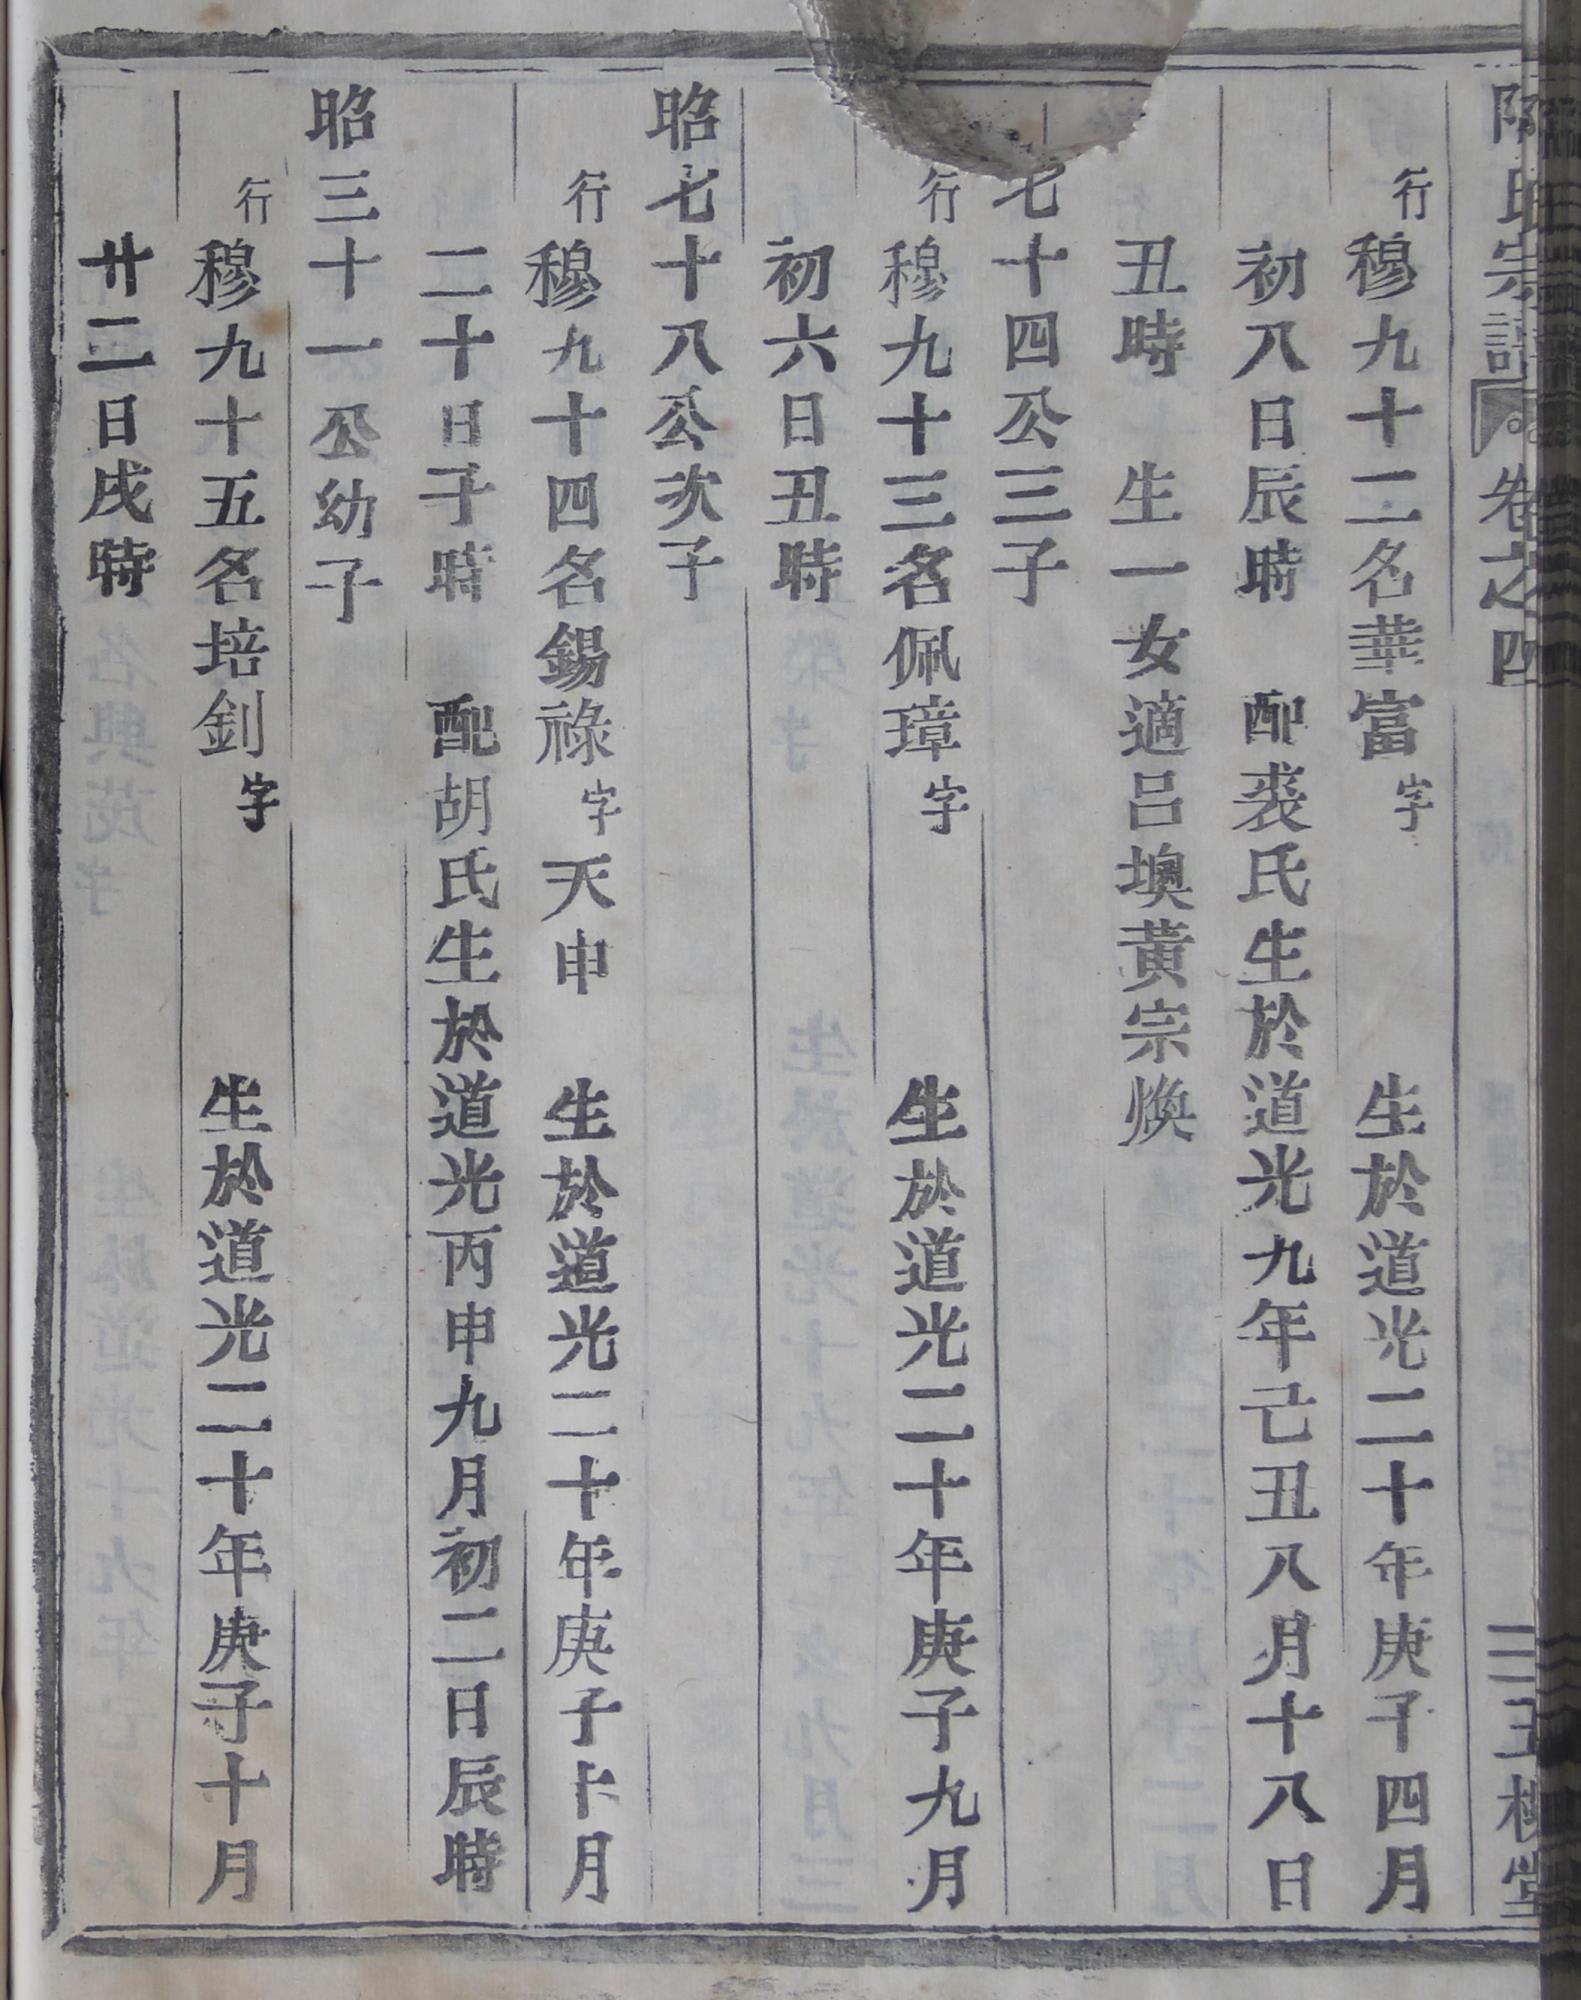 陳氏宗譜 卷之四 三王槐堂
行穆九十二名華富字 生於道光二十年庚子四月
初八日辰時 配裘氏生於道光九年己丑八月十八日
丑時 生一女適呂墺黃宗煥
七十四公三子
行穆九十三名佩璋字 生於道光二十年庚子九月
初六日丑時
昭七十八公次子
行穆九十四名錫祿字天申 生於道光二十年庚子十月
二十日子時 配胡氏生於道光丙申九月初二日辰時
昭三十一公幼子
行穆九十五名培釗字 生於道光二十年庚子十月
廿二日戌時